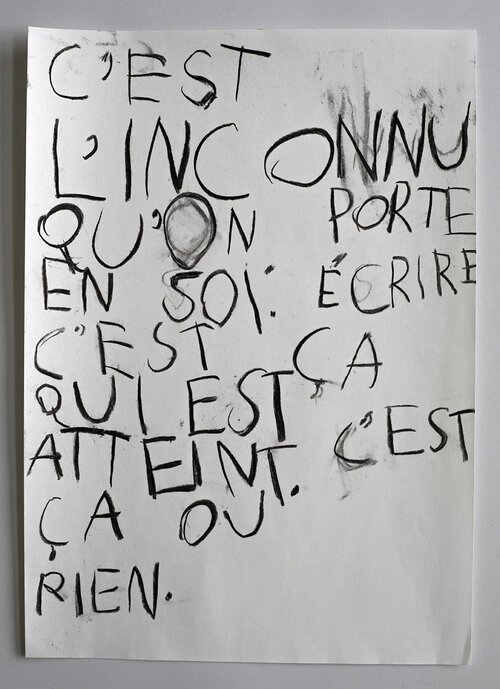 C'EST
L'INCONNU
QU'ON PORTE
EN SOI: ÉCRIRE
C'EST ÇA
QUI EST
ATTEINT. C'EST
ÇA OU
RIEN.